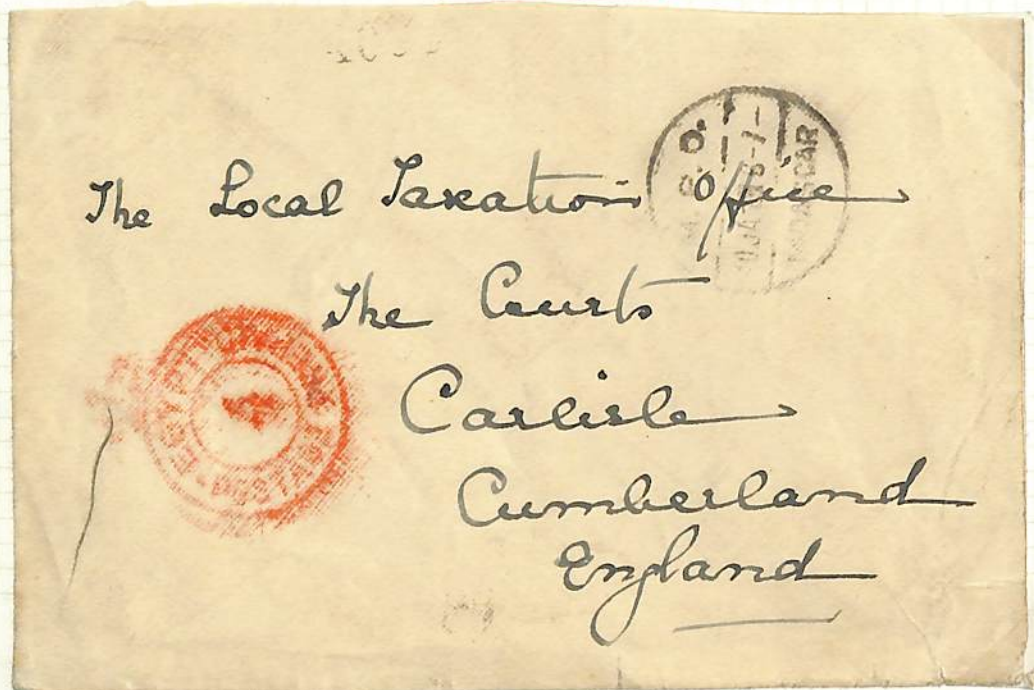 The Local Taxation Office
The Courts
Carlisle
Cumberland
England
POSTAGE